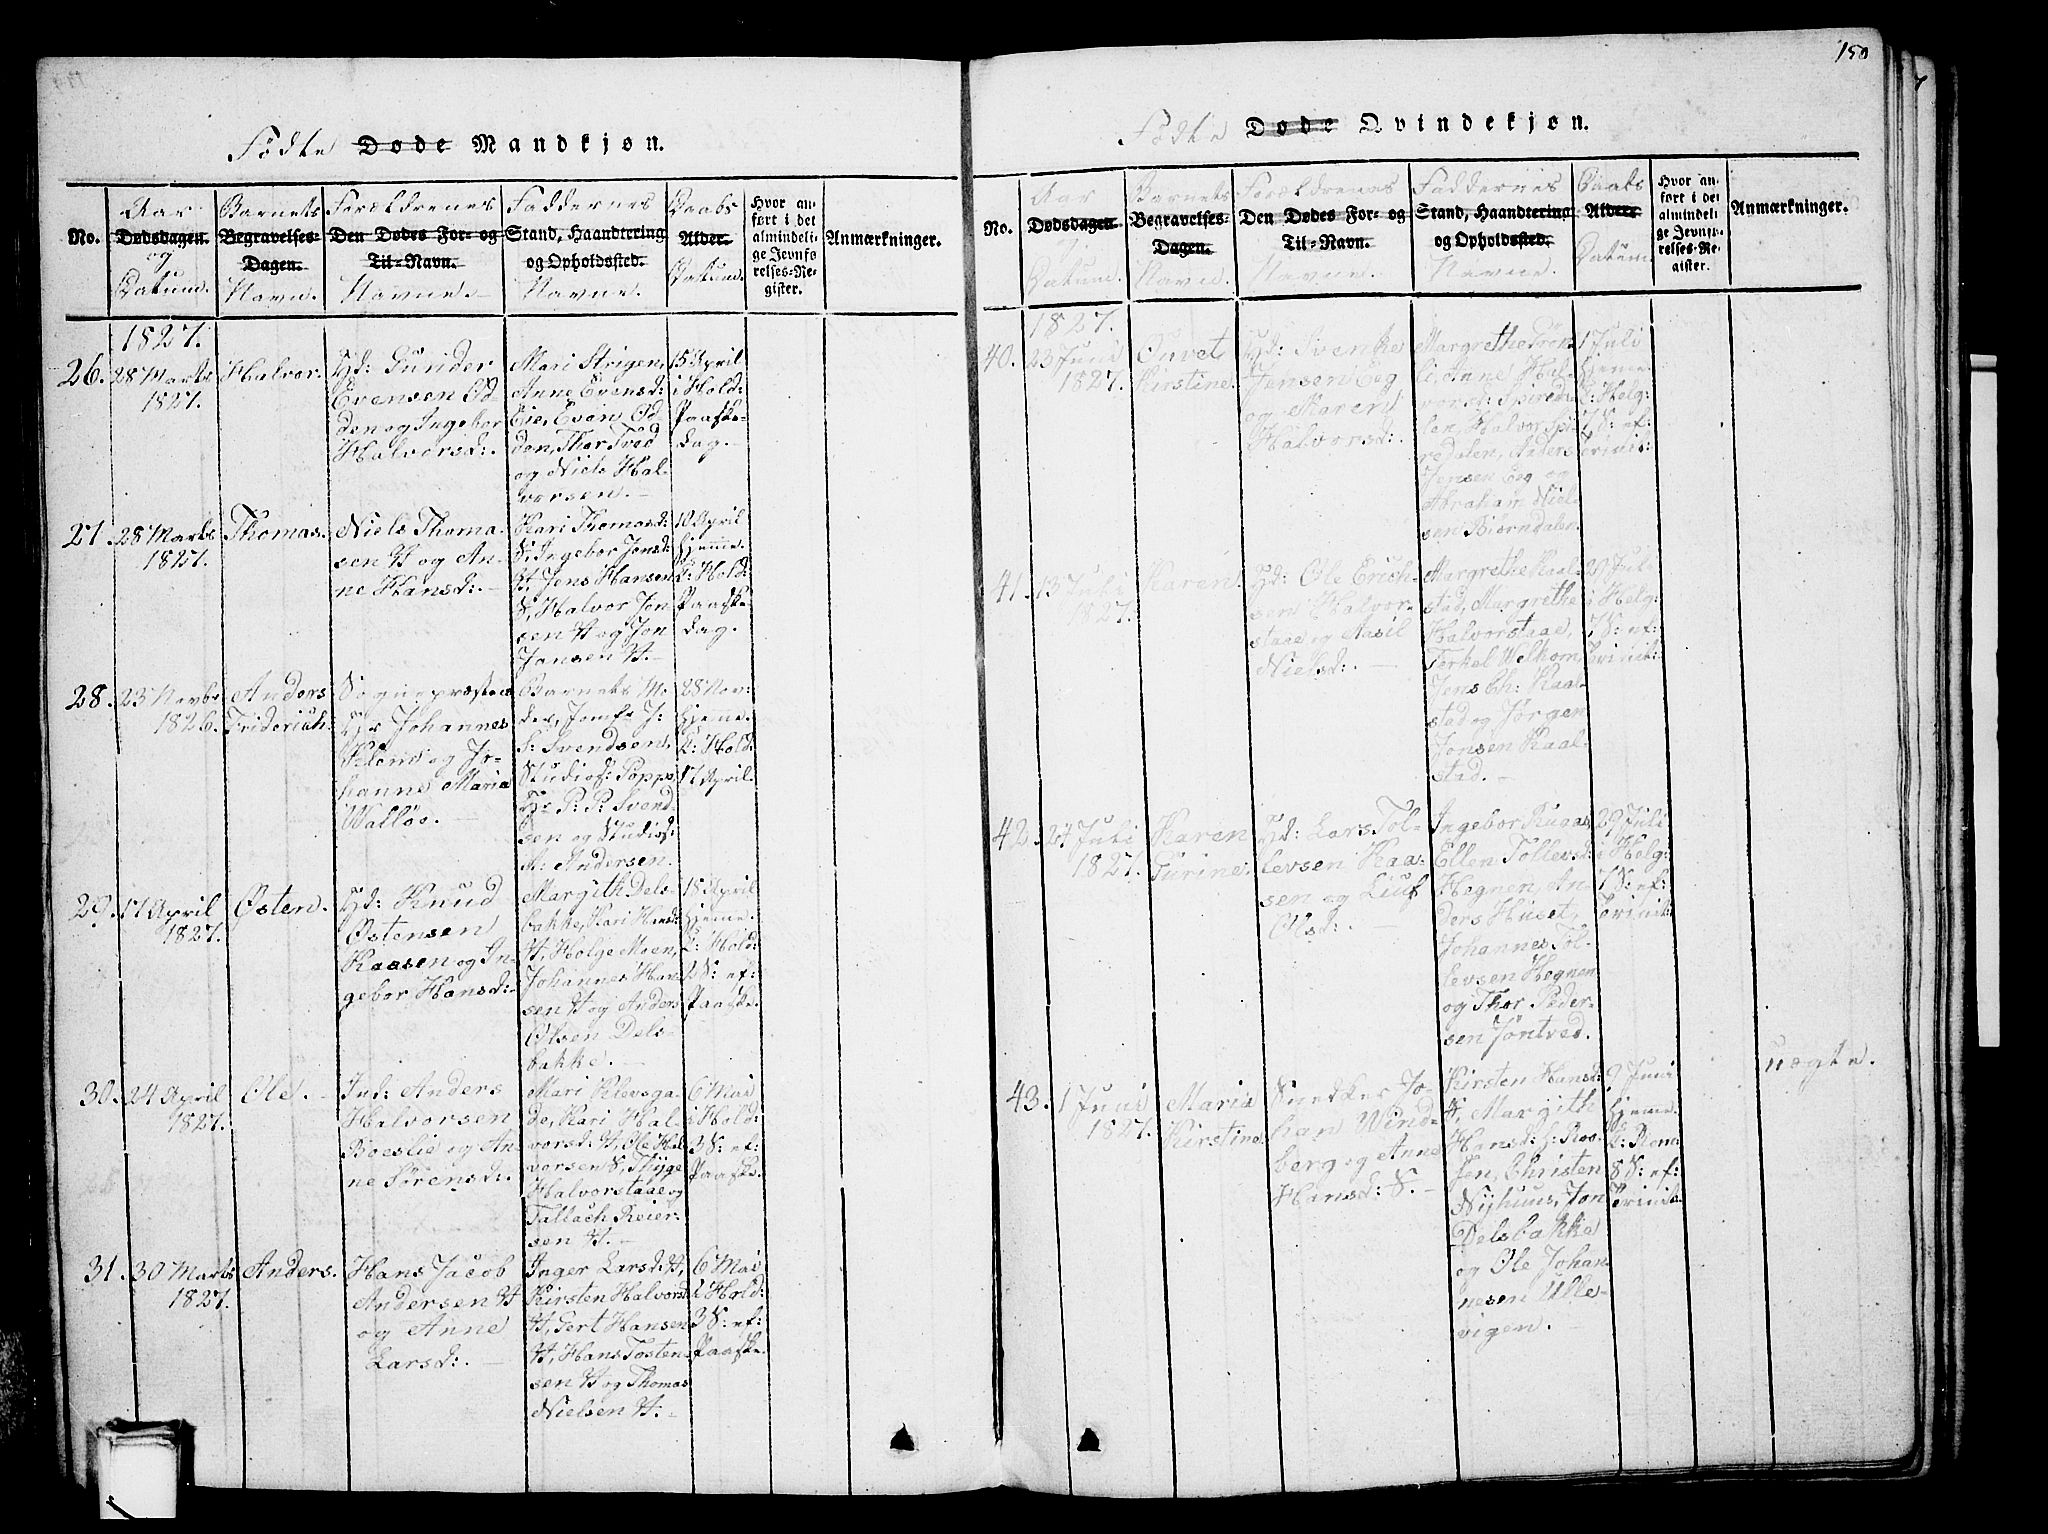 150
Fødte Døde Mandkjøn.
No.
Aar
Dødsdagen.
og
Datum.
Barnets
Begravelses-
Dagen.
Navn.
Forældrenes
Den Dødes For- og
Til-Navn.
Navne.
Faddernes
Stand, Haandtering
og Opholdssted.
Navne.
Daabs
Alder.
Datum.
Hvor an-
ført i det
almindeli-
ge Jevnfø
relses-Re-
gister.
Anmærkninger.
1827.
26. 28 Marts
1827.
Halvor.
Gunder
Evensen Od-
den og Ingebor
Halvorsd:
Mari Strigen,
Anne Evensd:
Eie, Even Od-
den, Thor Tved
og Niels Hal-
vorsen.
15 April
i Hold:
Paaske-
dag.
27. 28 Marts
1827.
Thomas.
Niels Thoma-
sen H og An-
ne Hansd:
Kari Thomasd:
S, Ingebor Jonsd:
H, Jens Hansen
S, Halvor Jon-
sen H og Jon
Jansen H.
10 April
hjemme.
T: Hold:
Paaske-
dag.
28. 23 Novbr
1826.
Anders
Friderich.
Sognepræsten
Hr Johannes
og Jo-
hanne Maria
Walløe.
Barnets Mo-
der, Jomfr J:
S: Svendsen,
Studios: Poppe,
Hr P: P: Svend-
sen og Studios:
A: Andersen.
28 Nov:
hjemme.
T: Hold:
17 April.
29. 17 April
1827.
Østen.
Knud
Østensen
Kaasen og In-
gebor Hansd:
Margith Dels-
bakke, Kari Hansd:
H, Helge Moen,
Johannes Han-
sen H og Anders
Olsen Dels-
bakke.
18 April
hjemme.
T: Hold:
2 S: ef:
Paaske.
30. 24 April
1827.
Ole.
Ind: Anders
Halvorsen
Boeslie og An-
ne Sørensd:
Mari Klevsga-
de, Kari Hal-
vorsd: H, Ole Hal-
vorsen S, Thyge
Halvorstaae og
Tallach Reier-
sen H.
6 Mai
i Hold:
3 S: ef:
Paaske.
31. 30 Marts
1827.
Anders.
Hans Jacob
Andersen H
og Anne
Larsd:
Inger Larsd: H,
Kirsten Halvorsd:
H, Gert Hansen
H, Hans Tosten-
sen H og Thomas
Nielsen H.
6 Mai
i Hold:
3 S: ef:
Paaske.
Fødte Døde Qvindekjøn.
No.
Aar
Dødsdagen.
Datum.
Barnets
Begravelses-
Dagen.
Navn.
Forældrenes
Den Dødes For- og
Til-Navn.
Navne.
Faddernes
Stand, Haandtering
og Opholdssted.
Navne.
Daabs
Alder.
Datum.
Hvor an-
ført i det
almindeli-
ge Jevnfø-
relses-Re-
gister.
Anmærkninger.
1827.
40. 23 Juni
1827.
Tuvet
Kirstine.
Svenke
Jensen Eeg
og Maren
Halvorsd:
Margrethe
Anne Hal-
vorsd: Spireda-
len, Halvor Spi-
redalen, Anders
Jensen Eeg og
Abraham Niel-
sen Bierndalen.
1 Juli
hjemme.
T: Helg:
7 S: ef:
Trinit:
41. 13 Juli
1827.
Karen.
Ole Erich-
sen Halvor-
staae og Aasil
Nielsd:
Margrethe Kaal-
stad, Margrethe
Halvorstaae,
Terkel Welkom,
Jens Ch: Kaal-
stad og Jørgen
Jonsen Kaal-
stad.
29 Juli
i Helg:
7 S: ef:
Trinit:
42. 24 Juli
1827.
Karen
Turine.
Lars Tol-
levsen Kaa-
sen og Liuf
Olsd:
Ingebor Rugaas,
Ellen Tollevsd:
Hegnen, An-
ders Huset,
Johannes Tol-
levsen Hegnen
og Thor Peder-
sen Jøntved.
29 Juli
i Helg:
7 S: ef:
Trinit:
43. 1 Juni
1827.
Maria
Kirstine.
Snedker Jo-
han Wind-
berg og Anne
Hansd: S.
Kirsten Hansd:
S, Margith
Hansd:
Christen
Nyhuus, Jon
Delsbakke
og Ole Johan-
nesen Ulle-
vigen.
2 Juni
hjemme.
T: Rom:
8 S: ef:
Trinit:
uægte.